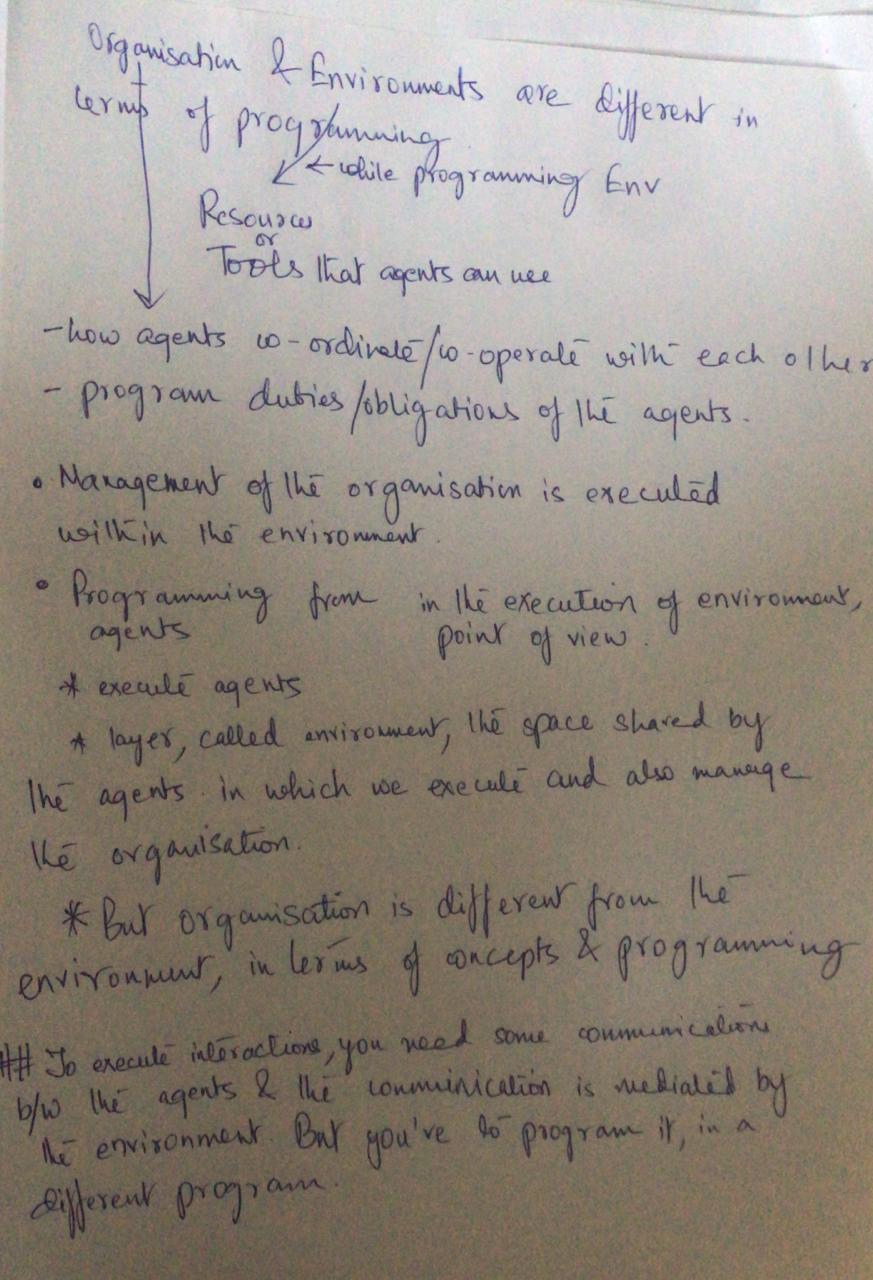 Organisation & Environments are different in
terms of programming
← while programming Env
Resources
or
Tools that agents can use
- how agents co-ordinate/co-operate with each other
- program duties/obligations of the agents.
• Management of the organisation is executed
within the environment.
• Programming from in the execution of environment,
agents point of view.
* execute agents
* layer, called environment, the space shared by
the agents in which we execute and also manage
the organisation.
* But organisation is different from the
environment, in terms of concepts & programming
## To execute interactions, you need some communications
b/w the agents & the communication is mediated by
the environment. But you've to program it, in a
different program.